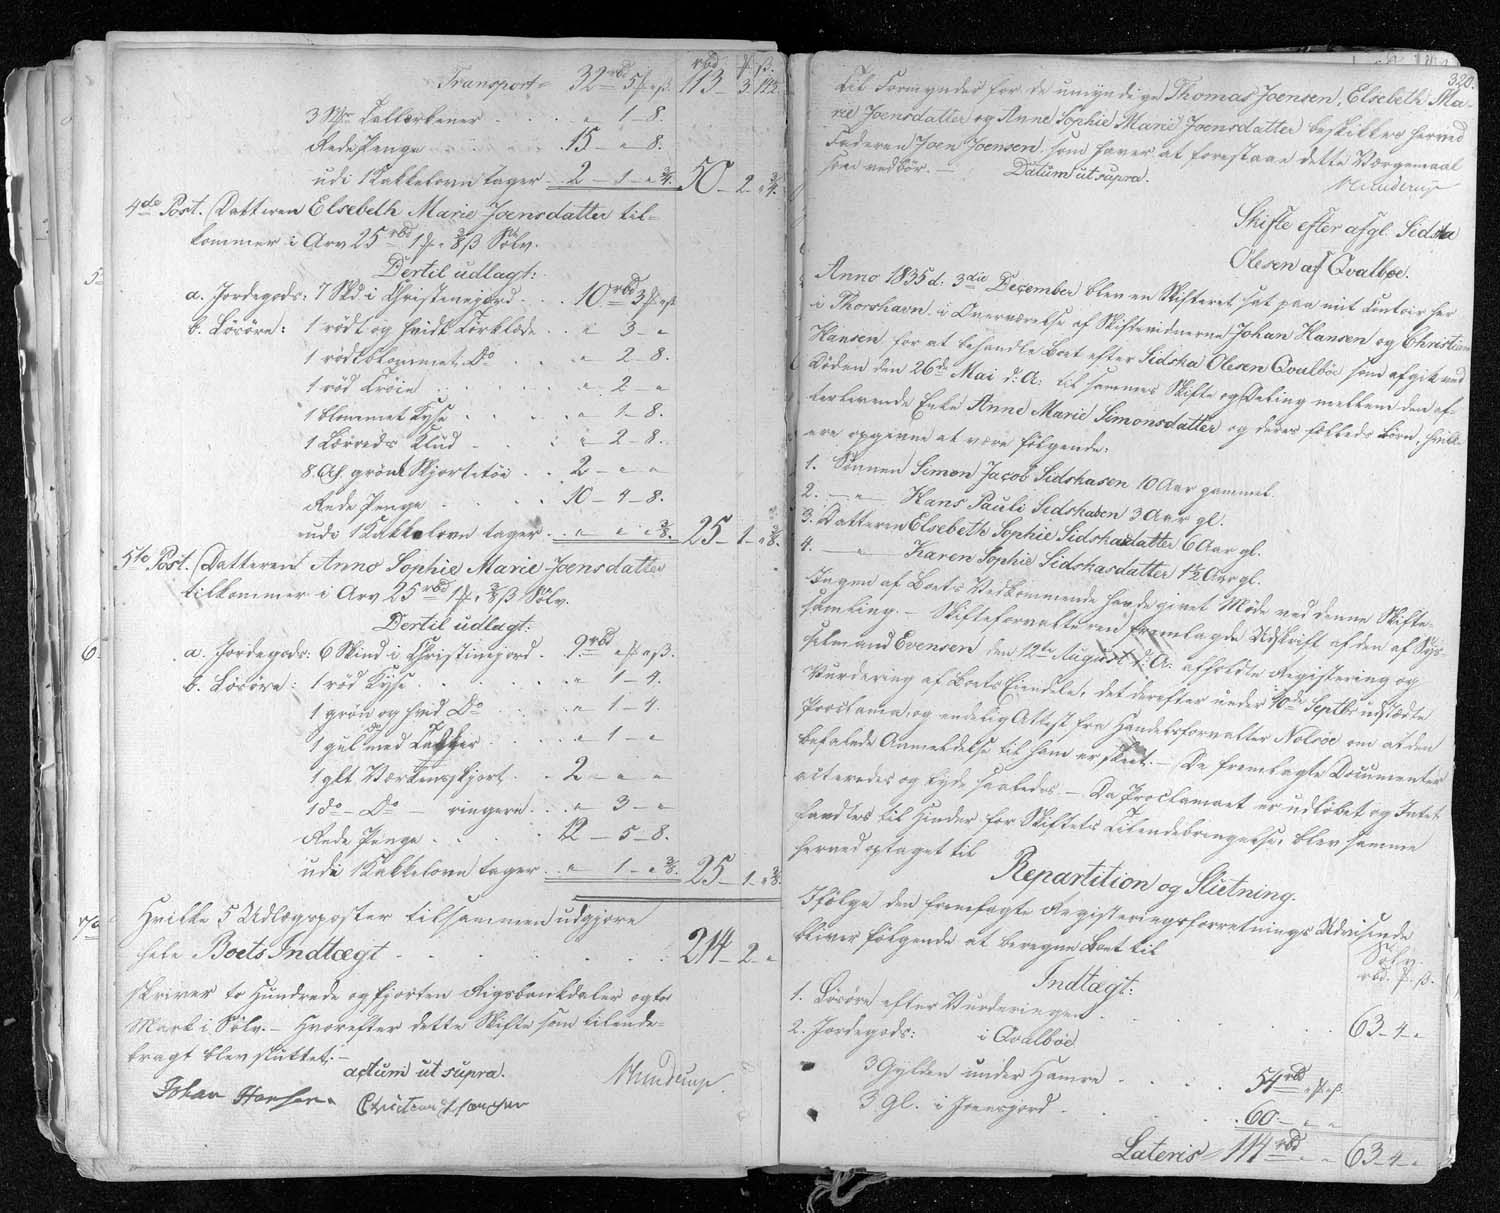 Transport 32 rbd 5 113 3
3 Tallerkener 1 - 8.
Rede Penge 15 - " 8.
udi 1 Kakkelovn tager 2 - 1 - " 3/4. 50 - 2 - " 3/4.
4de Post. Datteren Elsebeth Marie Joensdatter til-
kommer i Arv 25 rbd 1 # " 3/8 ß Sølv.
Dertil udlagt:
5
a. Jordegods: 7 Skd i Christinejord . . 10 rbd 3
b. Løsøre: 1 rødt og hvidt Tørklæde . . " 3 - "
1 rødblommet Do . . " 2 - 8.
1 rød Trøie . . " 2 - "
1 blommet Kyse . . " 1 - 8.
1 Lærreds Klud . . " 2 - 8.
8 Al grønt Skjortetøi . . 2 - " - "
Rede Penge . . 10 - 4 - 8.
udi 1 Kakkelovn tager . . " " " 3/8. 25 - 1 - " 3/8.
5te Post. Datteren Anne Sophie Marie Joensdatter
tilkommer i Arv 25 rbd 1 # " 3/8 ß Sølv.
Dertil udlagt:
6
a. Jordegods: 6 Skind i Christinejord . 9 rbd " # " ß.
b. Løsøre: 1 rød Kyse . . " 1 - 4.
1 grøn og hvid Do . . " 1 - 4.
1 gul do med . . " 1 - "
1 glt Værkensskjort . . 2 - " - "
1 do - Do - ringere . . " 3 - "
Rede Penge . . 12 - 5 - 8.
udi 1 Kakkelovn tager . . " 1 - " 3/8. 25 - 1 - " 3/8.
Hvilke 5 Udlægsposter tilsammen udgjøre
hele Boets Indtægt . . 214 - 2 - "
skriver to Hundrede og fjorten Rigsbankdaler og to
Mark i Sølv. - Hvorefter dette Skifte som tilende-
bragt blev sluttet. -
actum ut supra.
Johan Hansen. Christian Hansen
320.
Til Formynder for de umyndige Thomas Joensen, Elsebeth Ma-
rie Joensdatter og Anne Sophie Marie Joensdatter beskikkes herved
Faderen Joen Joensen, som haver at forestaae dette Værgemaal
som vedbør. - Datum ut supra.
Skifte efter afgl. Sidska
Olesen af Qvalbøe.
Anno 1835 d: 3die December blev en Skifteret sat paa mit Contoir her
i Thorshavn i Overværelse af Skiftevidnerne Johan Hansen og Christian
Hansen for at behandle Boet efter Sidska Olesen Qvalbøe som afgik ved
Døden den 26de Mai d: A: til sammes Skifte og Deling mellem den ef-
terlevende Enke Anne Marie Simonsdatter og deres fælleds Børn, hvil-
ere opgivne at være følgende:
1. Sønnen Simon Jacob Sidskasen 10 Aar gammel.
2. - " - Hans Pauli Sidskasen 3 Aar gl.
3. Datteren Elsebeth Sophie Sidskasdatter 6 Aar gl.
4. - " - Karen Sophie Sidskasdatter 1½ Aar gl.
Ingen af Boets Vedkommende havde givet Møde ved denne Skifte-
samling. - Skifteforvalteren fremlagde Udskrift af den af Sys-
selmand Evensen den 12te August d: A: afholdte Registering og
Vurdering af Boets Eiendele, det derefter under 10de Septbr udstædte
Proclama, og endelig Attest fra Handelsforvalter Nolsøe om at den
befalede Anmeldelse til ham er skeet. - De fremlagte Documenter
acteredes og lyde saaledes. - Da Proclamaet er udløbet og Intet
havdes til Hinder for Skiftets Tilendebringelse, blev samme
herved optaget til
Repartition og Slutning.
Ifølge den fremlagte Registeringsforretnings Udvisende
bliver følgende at beregne Boet til
Sølv.
rbd. # ß.
Indtægt:
1. Løsøre efter Vurderingen . . 63 - 4 - "
2. Jordegods: i Qvalbøe
3 Gylden under Hamre . . 54 rbd " # " ß
3 Gl. i Joensjord . . 60 - " - "
Lateris 114 rbd " " 63 - 4 - "